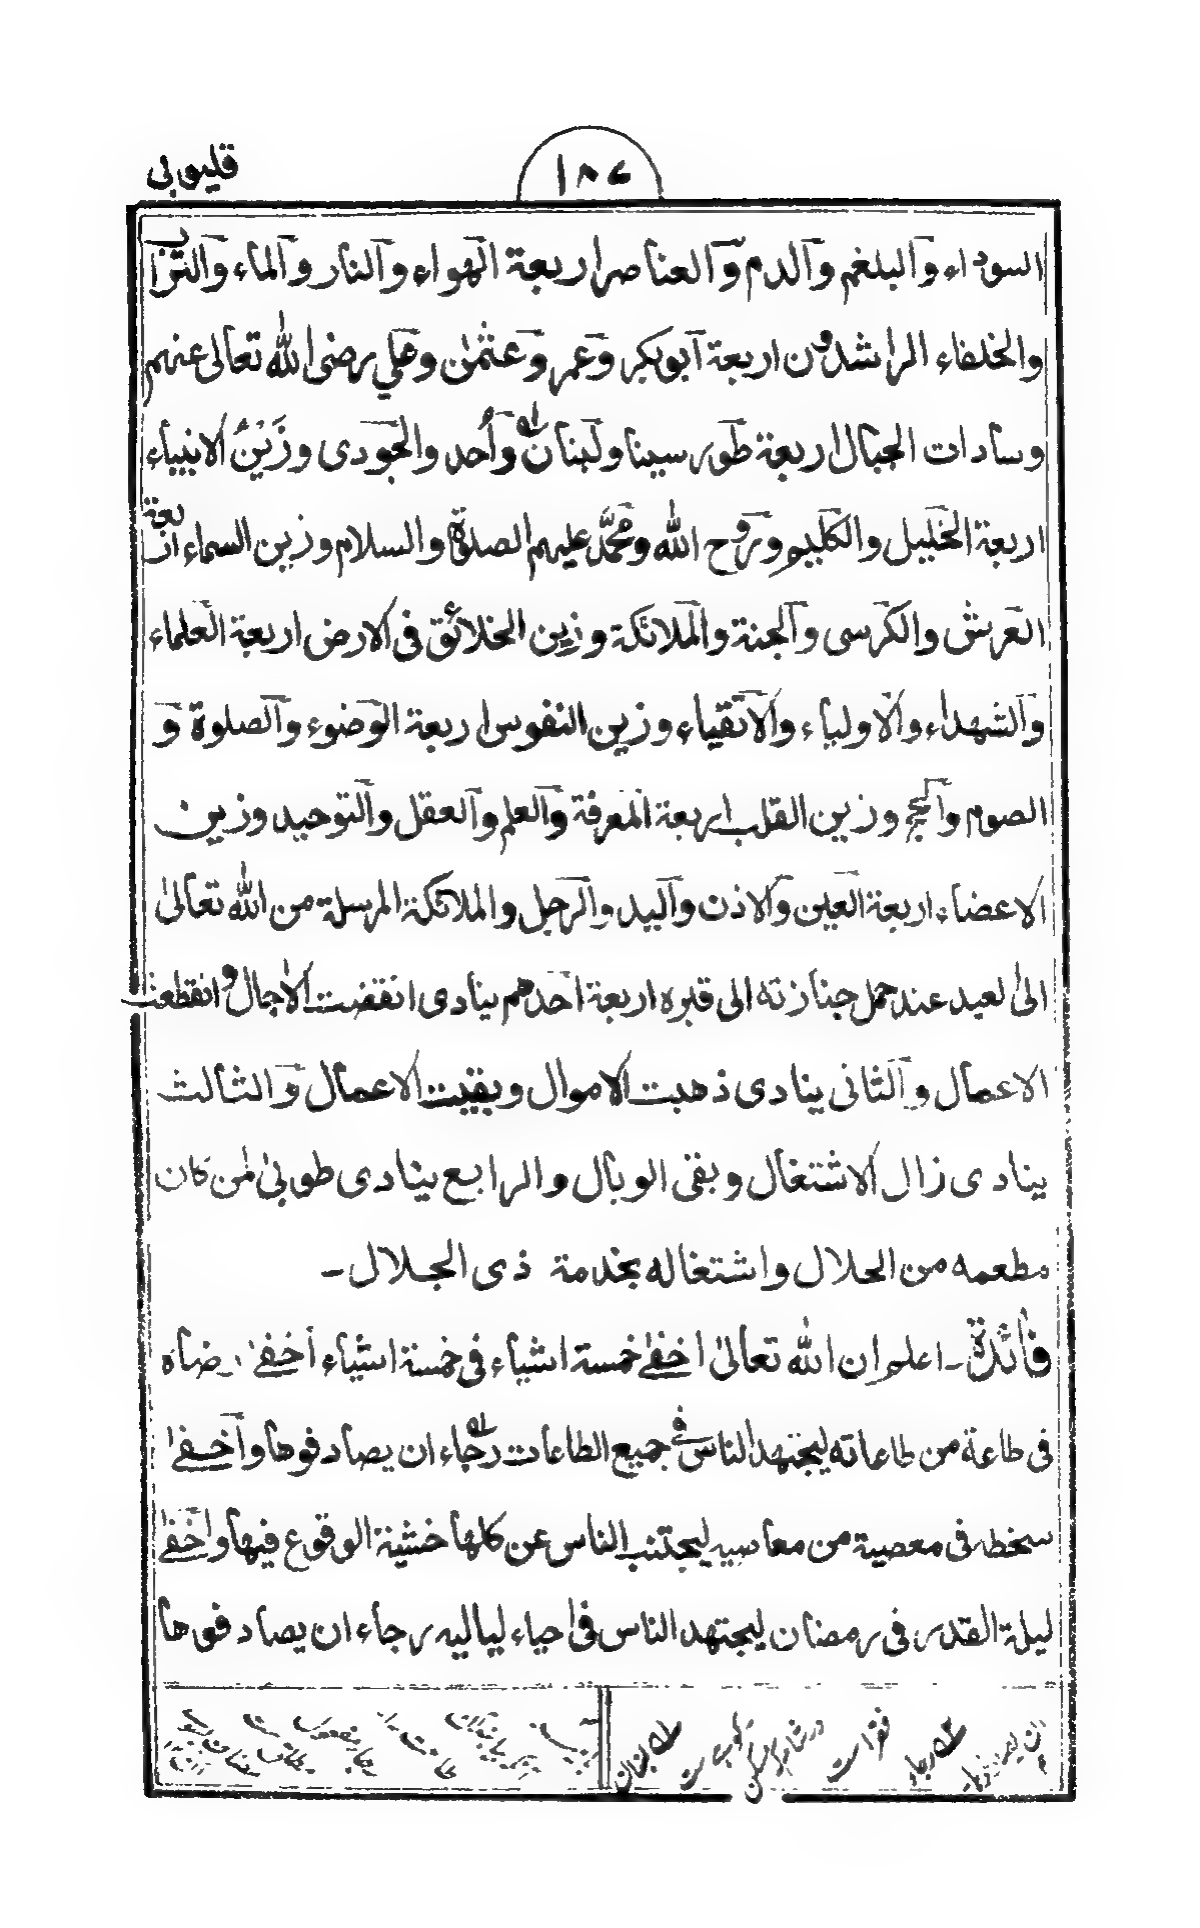 قليوبى
١٨٤
السوداء والبلغم والدم والعناصر اربعة الهواء والنار والماء والتراب
والخلفاء الراشدون اربعة ابوبكر وعمر وعثمٰن وعلي رضى الله تعالى عنهم
وسادات الجبال اربعة طور سينا ولبنان وأحد والجودى وزَيَّنَ الانبياء
اربعة الخليل والكليم وروح الله ومحمَّد عليهم الصلوٰة والسلام وزين السماء اربعة
العرش والكرسى والجنة والملائكة وزين الخلائق فى الارض اربعة العلماء
والشهداء والاولياء والاتقياء وزين النفوس اربعة الوضوء والصلوة و
الصوم والحج وزين القلب اربعة المعرفة والعلم والعقل والتوحيد وزين
الاعضاء اربعة العين والاذن واليد والرجل والملائكة المرسلة من الله تعالىٰ
الىٰ لعبد عند حمل جنازته الى قبره اربعة احدهم ينادى انقضت الاٰجال وانقطعت
الاعمال والثانى ينادى ذهبت الاموال وبقيت الاعمال والثالث
ينادى زال الاشتغال وبقى الوبال والرابع ينادى طوبىٰ لمن كان
مطعمه من الحلال واشتغاله بخدمة ذى الجلال ـ
فائدة ـ اعلم ان الله تعالىٰ اخفىٰ خمسة اشياء فى خمسة اشياء أخفىٰ رضاه
فى طاعة من طاعاته ليجتهد الناس فى جميع الطاعات رجاء ان يصادفوها واخفىٰ
سخطه فى معصية من معاصيه ليجتنب الناس عن كلها خشية الوقوع فيها واخفىٰ
ليلة القدر فى رمضان ليجتهد الناس فى احياء لياليه رجاء ان يصادفوها